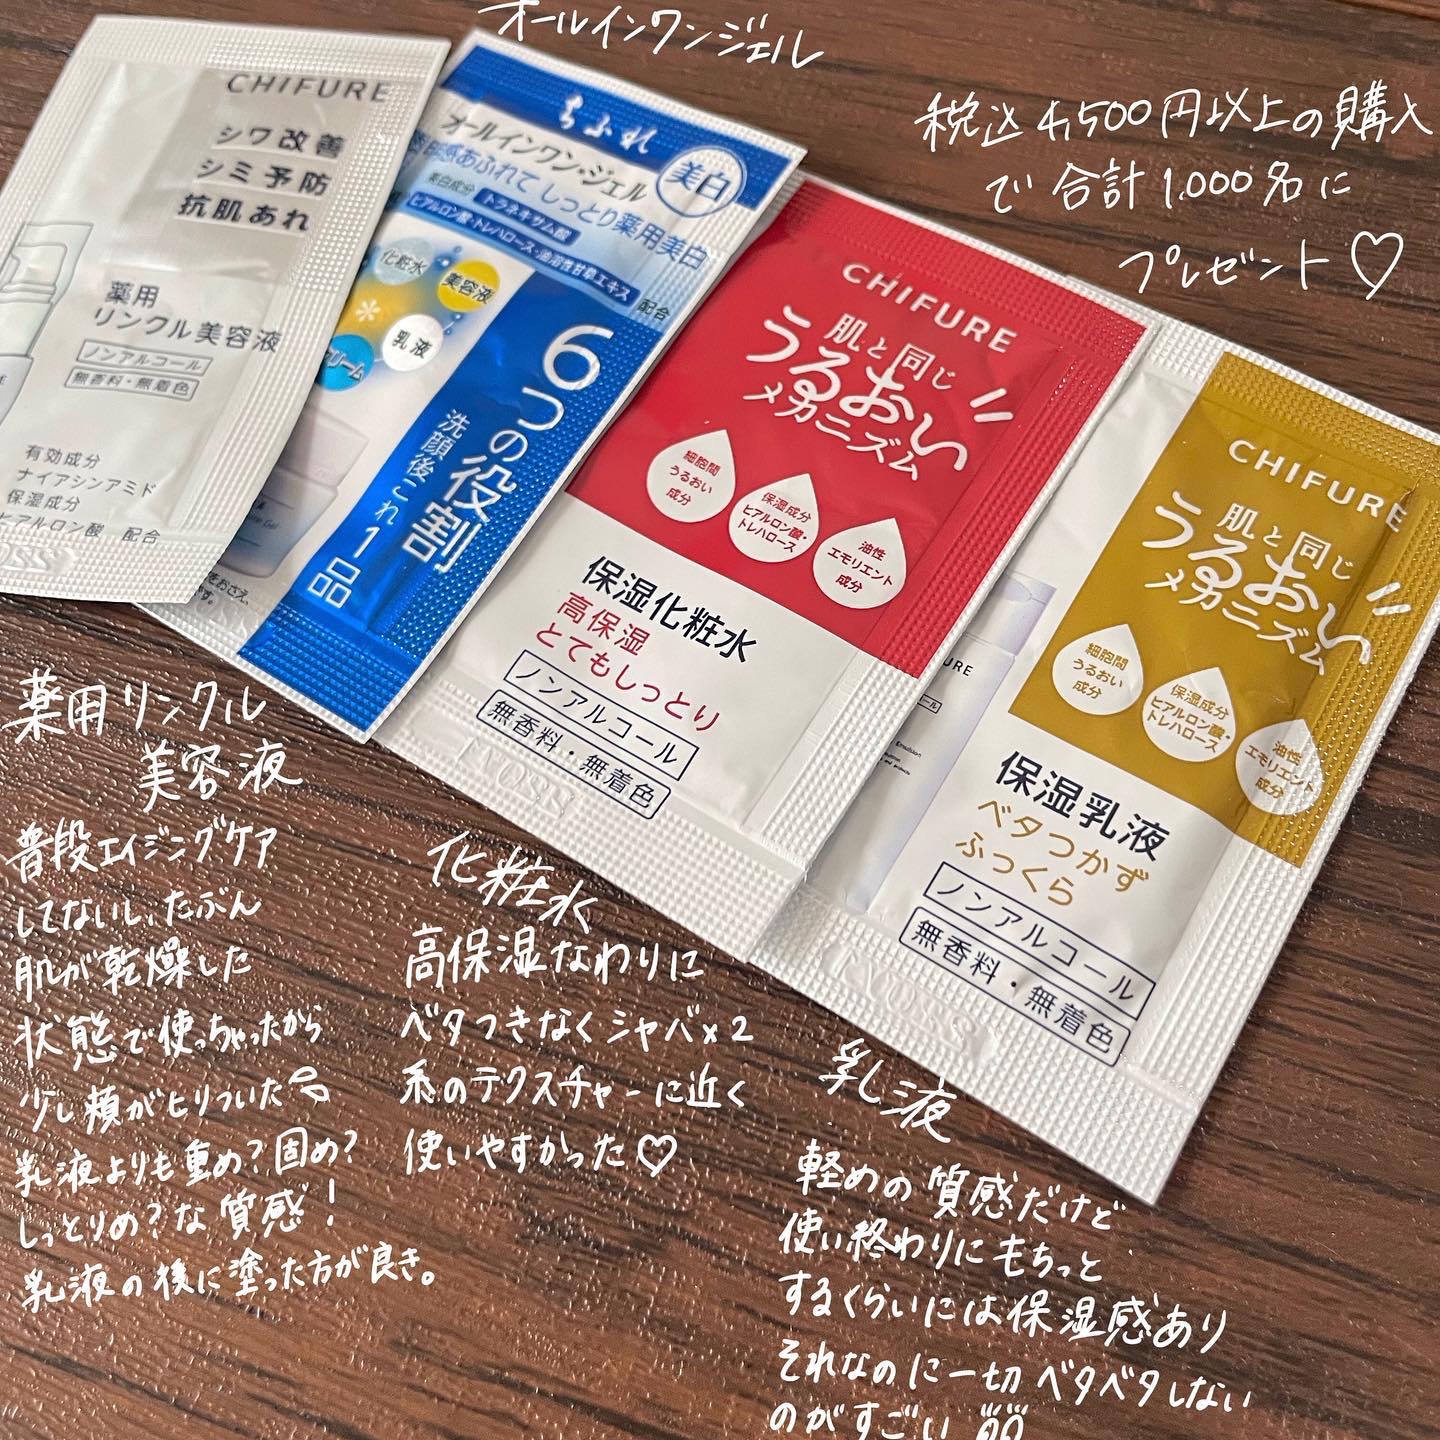 オールインワンジェル
税込4,500円以上の購入
で合計1,000名に
プレゼント♡
CHIFURE
シワ改善
シミ予防
抗肌あれ
薬用
リンクル美容液
ノンアルコール
無香料・無着色
有効成分
ナイアシンアミド
保湿成分
ヒアルロン酸 配合
ちふれ
オールインワン・ジェル
美白
感あふれて しっとり薬用美白
美白成分 トラネキサム酸
ヒアルロン酸・トレハロース・油溶性甘草エキス 配合
化粧水
美容液
乳液
リーム
6つの役割
洗顔後これ1品
をおさえ、
す。
CHIFURE
肌と同じ
うるおい
メカニズム
細胞間
うるおい
成分
保湿成分
ヒアルロン酸・
トレハロース
油性
エモリエント
成分
保湿化粧水
高保湿
とてもしっとり
ノンアルコール
無香料・無着色
CHIFURE
肌と同じ
うるおい
メカニズム
細胞間
うるおい
成分
保湿成分
ヒアルロン酸・
トレハロース
油性
エモリエント
成分
保湿乳液
ベタつかず
ふっくら
ノンアルコール
無香料・無着色
薬用リンクル
美容液
普段エイジングケア
してないし、たぶん
肌が乾燥した
状態で使っちゃったから
少し頬がヒリついた
乳液よりも重め?固め?
しっとりめ?な質感!
乳液の後に塗った方が良き。
化粧水
高保湿なわりに
ベタつきなくシャバ×2
系のテクスチャーに近く
使いやすかった♡
乳液
軽めの質感だけど
使い終わりにもちっと
するくらいには保湿感あり
それなのに一切ベタベタしない
のがすごい